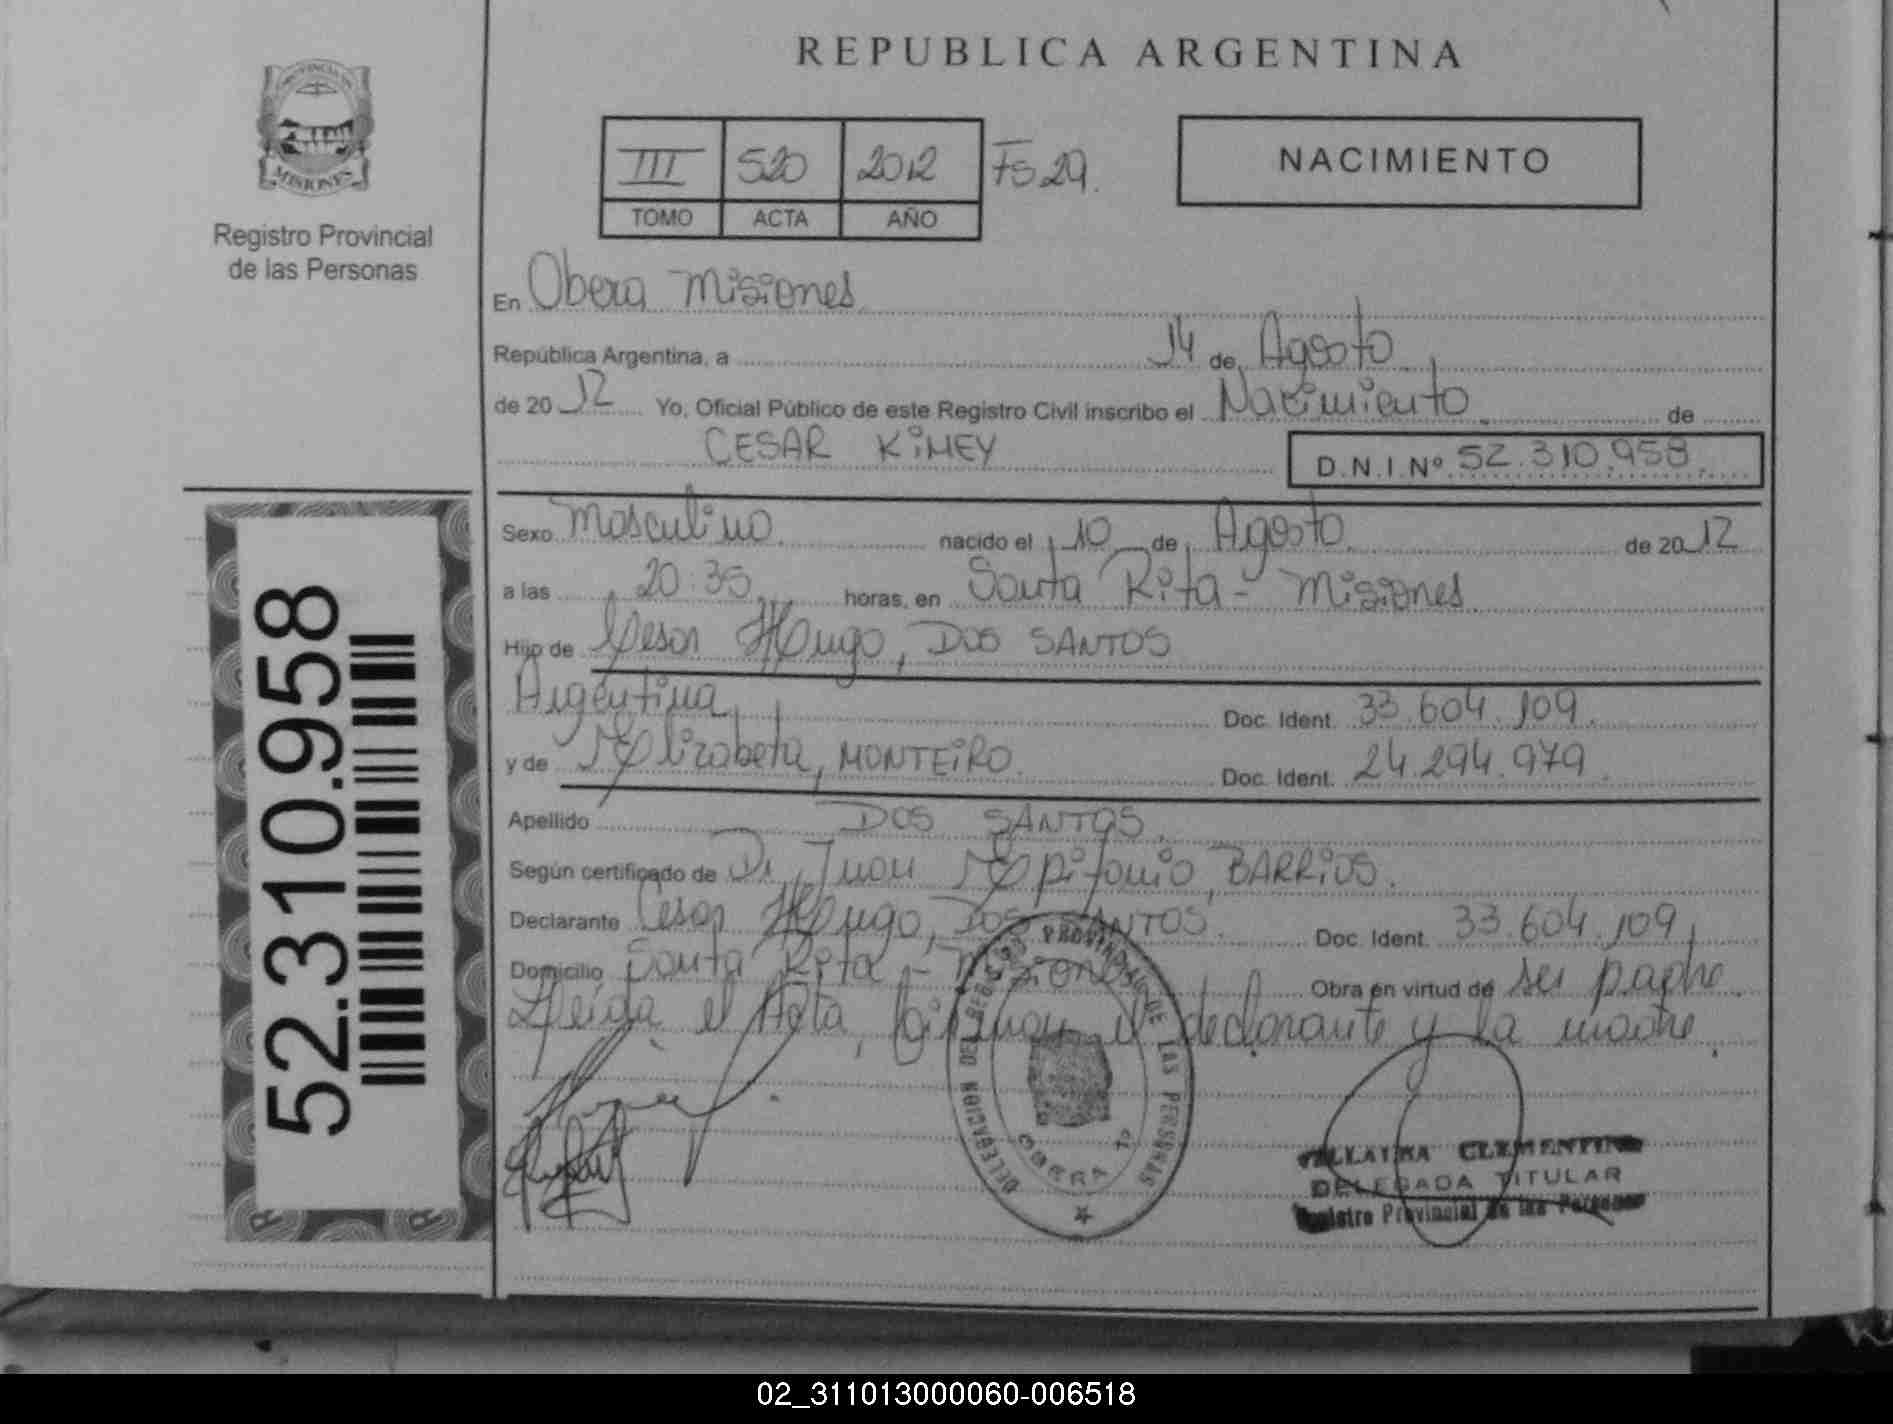 REPUBLICA ARGENTINA
PROVINCIA DE
MISIONES
Registro Provincial
de las Personas
III 520 2012 Fs 29.
TOMO ACTA AÑO
NACIMIENTO
En Obera Misiones
República Argentina, a 14 de Agosto
de 2012 Yo, Oficial Público de este Registro Civil inscribo el Nacimiento de
CESAR KiMEY D.N.I.Nº 52.310.958.
Sexo Masculino nacido el 10 de Agosto de 2012
a las 20:35 horas, en Santa Rita - Misiones
Hijo de Cesar Hugo, DOS SANTOS
Argentina Doc. Ident. 33.604.109.
y de Elizabeta, MONTEiRO. Doc. Ident. 24.294.979.
Apellido DOS SANTOS.
Según certificado de Dr Juan Epifanio, BARRiOS.
Declarante Cesar Hugo, DOS SANTOS. Doc. Ident. 33.604.109
Domicilio Santa Rita - Misiones Obra en virtud de ser padre.
Leída el Acta, firman el declarante y la madre.
DELEGACION DEL REGISTRO PROVINCIAL DE LAS PERSONAS
OBERA
CLEMENTINA
DELEGADA TITULAR
Registro Provincial de las Personas
52.310.958
02_311013000060-006518